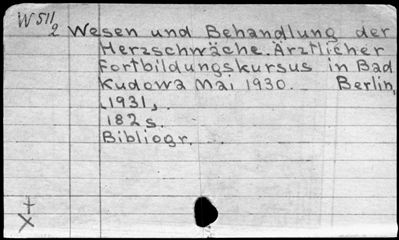 W 511
2
Wesen und Behandlung der
Herzschwäche. Ärztlicher
Fortbildungskursus in Bad
Kudowa Mai 1930. Berlin,
1931,.
182 s.
Bibliogr.